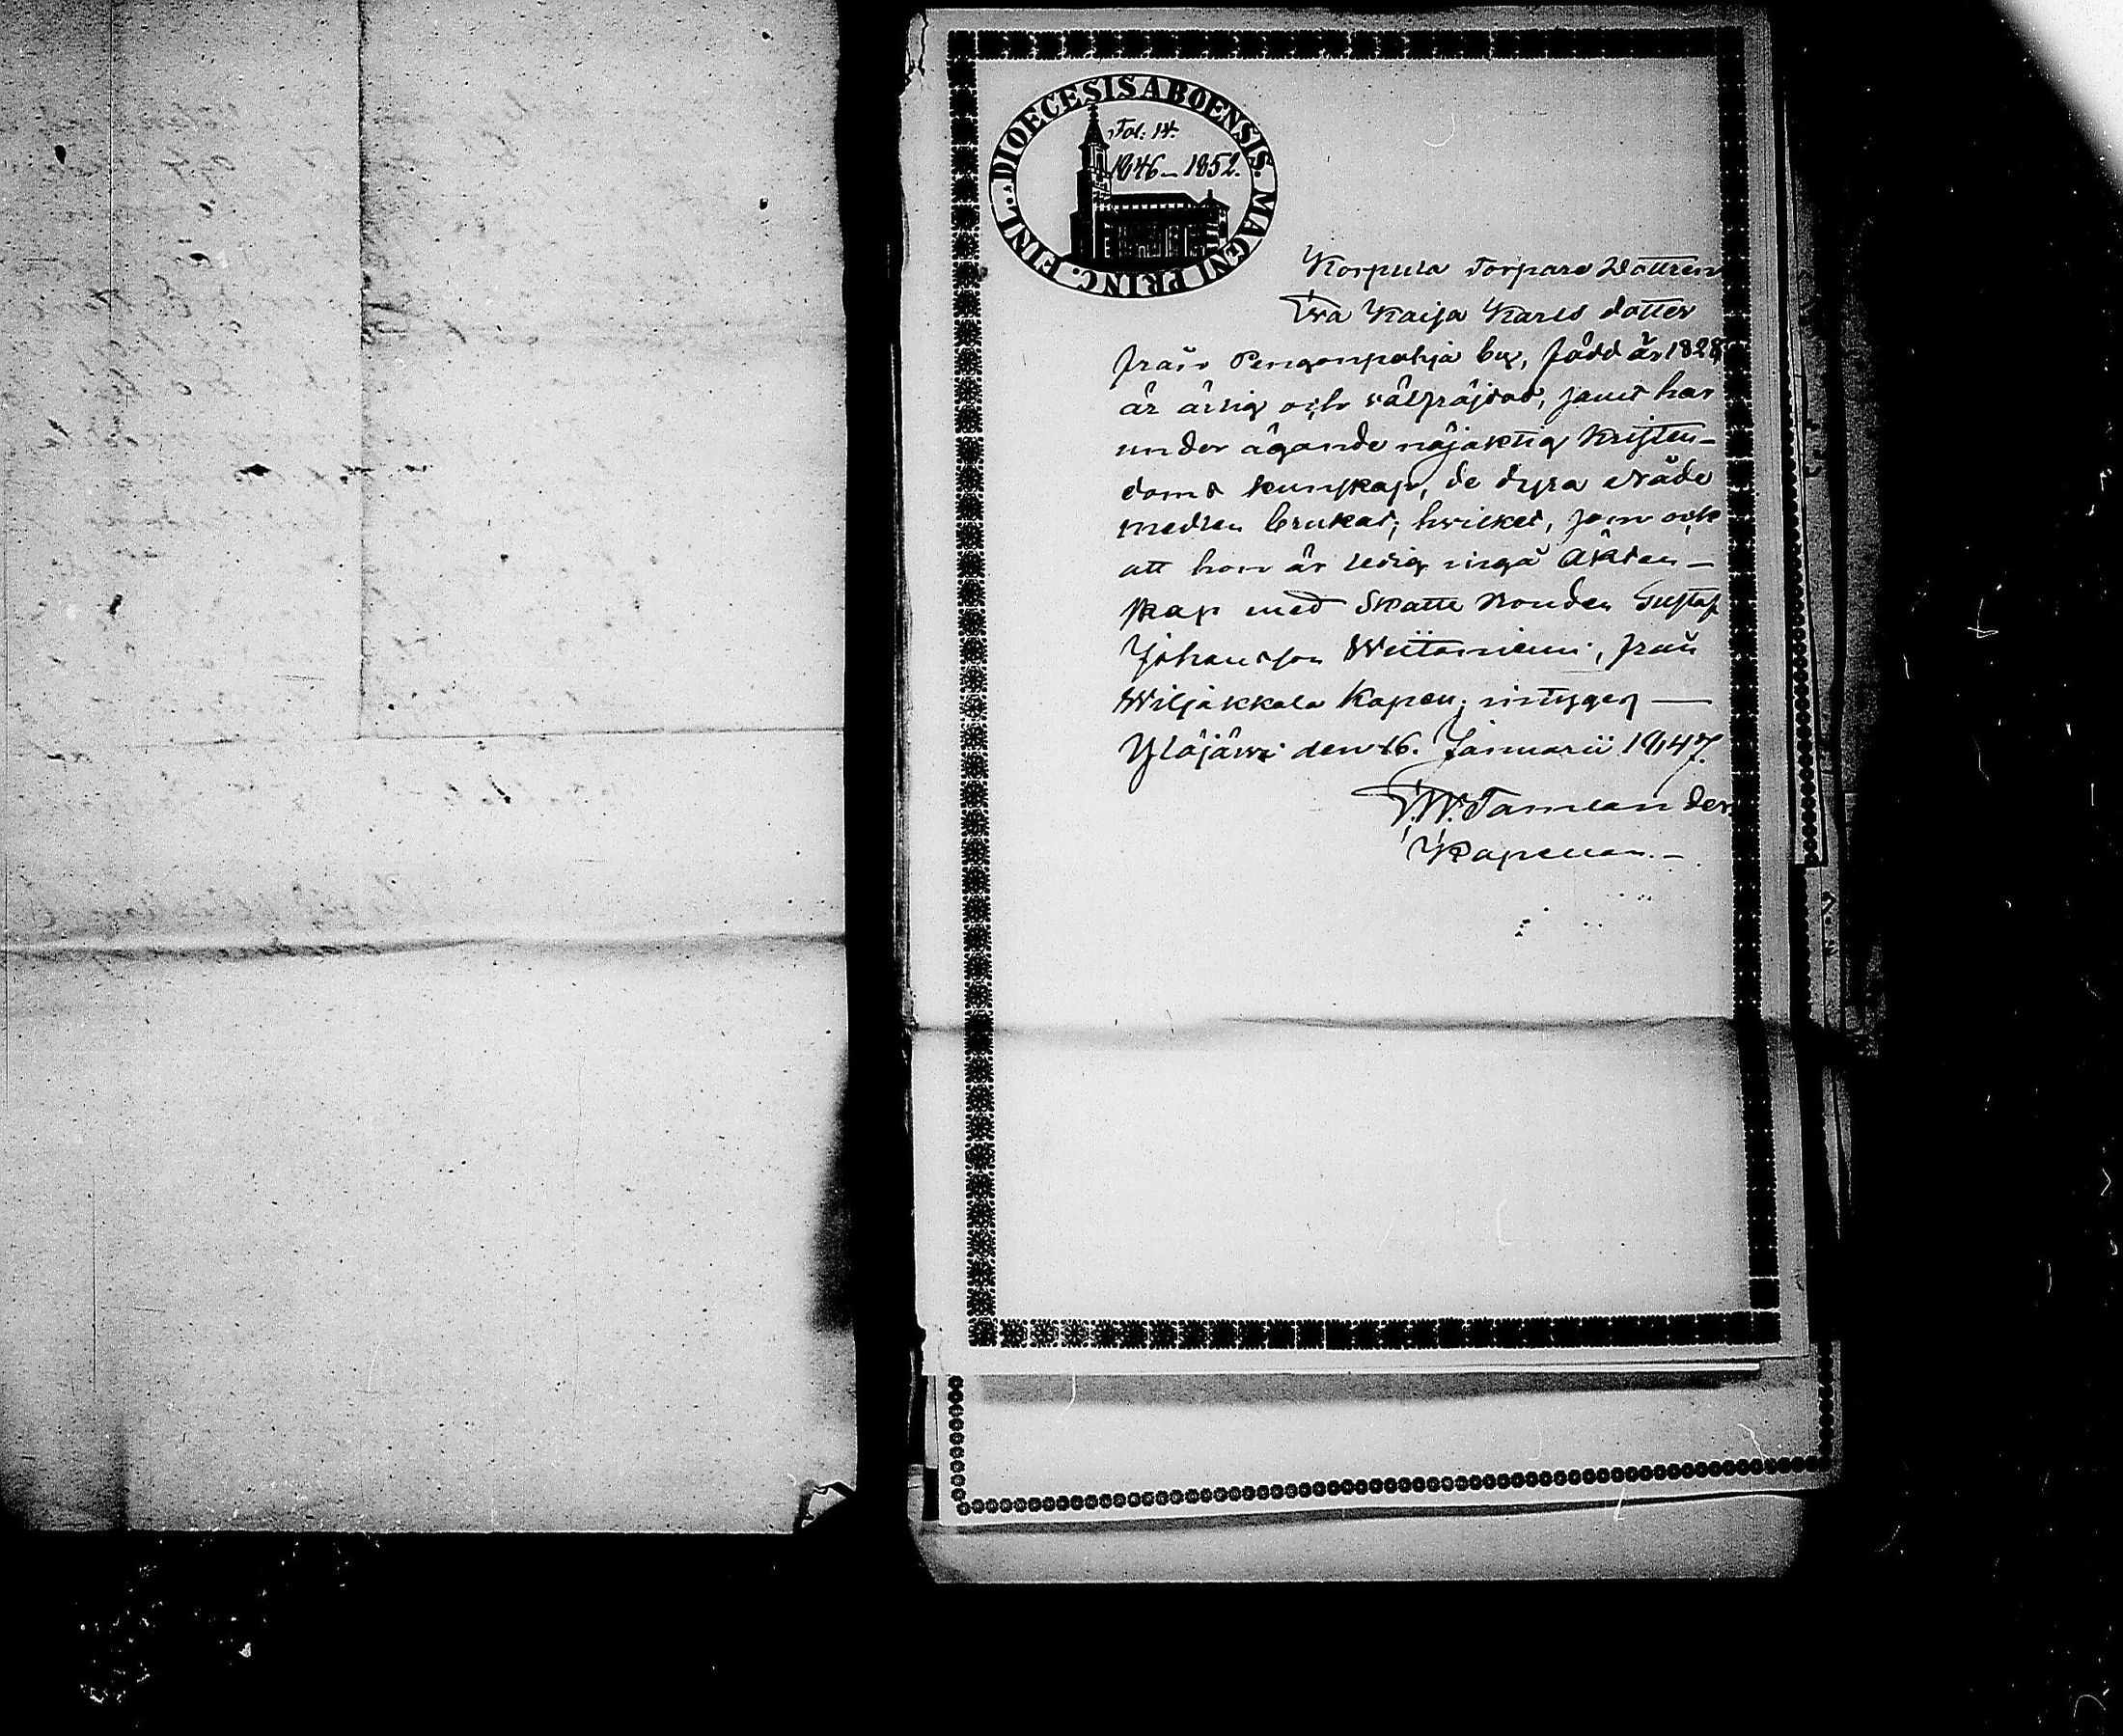 DIOECESIS ABOENSIS. MAGNI PRINC. FINL.
Fol. 14.
1846–1852.
Korpula Torpare Dottren
Eva Kaija Karls dotter
från Pengonpohja by, född år 1828,
är ärlig och välfräjdad, samt har
under ägande nöjaktig Kristen-
doms kunskap, de dyra Nåde
medlen brukat; hvilket, som ock
att hon är ledig ingå Äkten-
skap med Skatte Bonden Gustaf
Johansson Wiitaniemi, från
Wiljakkala Kapell; intygar —
Ylöjärwi den 16. Januarii 1847.
Tamlander
Kapellan.